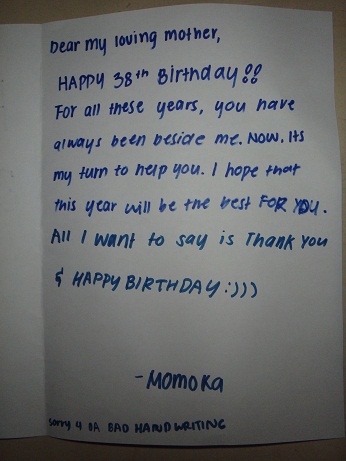 Dear my loving mother,
HAPPY 38th Birthday!!
For all these years, you have
always been beside me. Now, its
my turn to help you. I hope that
this year will be the best FOR YOU.
All I want to say is Thank You
& HAPPY BIRTHDAY :)))
- Momoka
sorry 4 DA BAD HANDWRITING